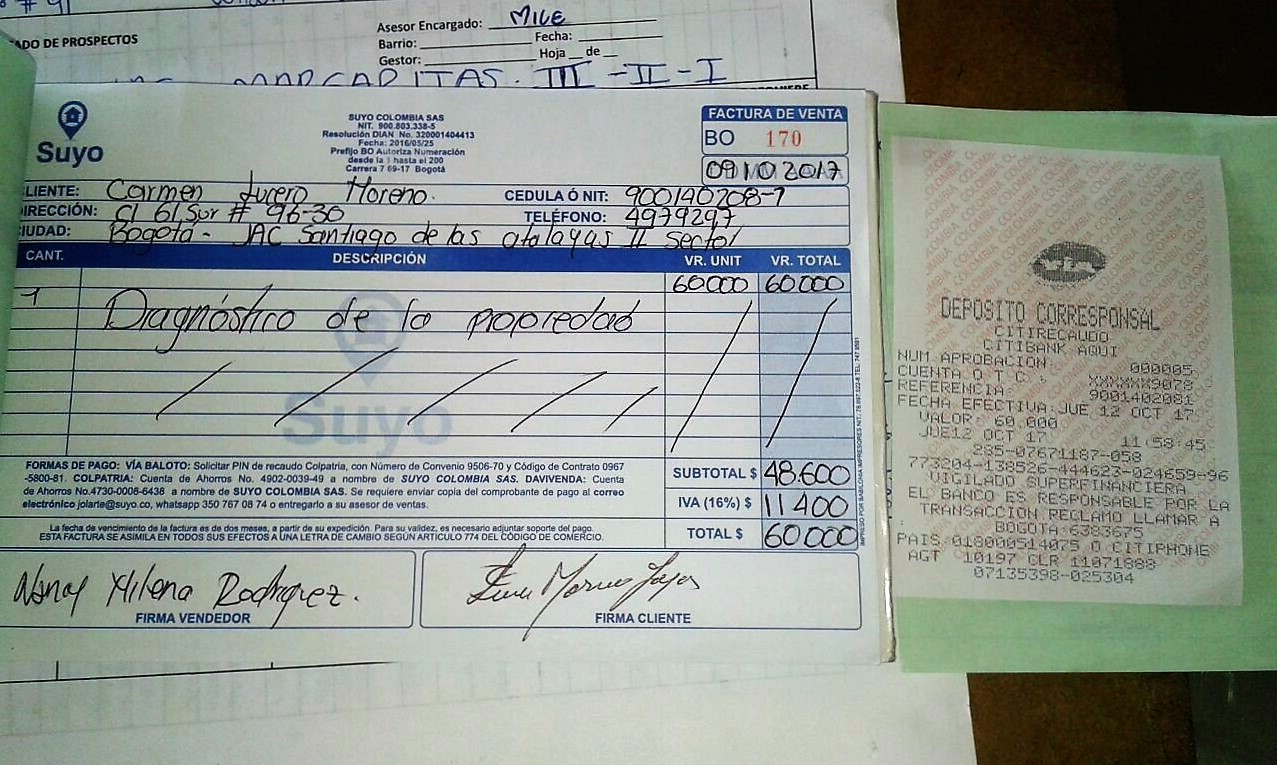 ADO DE PROSPECTOS
Asesor Encargado: MILE
Barrio: Fecha:
Gestor: Hoja de
MARGARITAS. III - II - I
Suyo
SUYO COLOMBIA SAS
NIT. 900.803.338-5
Resolución DIAN No. 320001404413
Fecha: 2016/05/25
Prefijo BO Autoriza Numeración
desde la 1 hasta el 200
Carrera 7 69-17 Bogotá
FACTURA DE VENTA
BO 170
09 10 2017
LIENTE: Carmen Lucero Moreno. CEDULA Ó NIT: 900140208-1
IRECCIÓN: Cl 61 Sur # 96-30 TELÉFONO: 4979297
IUDAD: Bogotá - JAC Santiago de las atalayas II Sector
CANT. DESCRIPCIÓN VR. UNIT VR. TOTAL
60000 60000
1 Diagnóstico de la propiedad
Suyo
FORMAS DE PAGO: VÍA BALOTO: Solicitar PIN de recaudo Colpatria, con Número de Convenio 9506-70 y Código de Contrato 0967
-5800-81. COLPATRIA: Cuenta de Ahorros No. 4902-0039-49 a nombre de SUYO COLOMBIA SAS. DAVIVENDA: Cuenta
de Ahorros No.4730-0008-6438 a nombre de SUYO COLOMBIA SAS. Se requiere enviar copia del comprobante de pago al correo
electrónico jolarte@suyo.co, whatsapp 350 767 08 74 o entregarlo a su asesor de ventas.
SUBTOTAL $ 48.600
IVA (16%) $ 11400
TOTAL $ 60000
La fecha de vencimiento de la factura es de dos meses, a partir de su expedición. Para su validez, es necesario adjuntar soporte del pago.
ESTA FACTURA SE ASIMILA EN TODOS SUS EFECTOS A UNA LETRA DE CAMBIO SEGÚN ARTICULO 774 DEL CÓDIGO DE COMERCIO.
Nancy Milena Rodriguez.
FIRMA VENDEDOR
FIRMA CLIENTE
DEPOSITO CORRESPONSAL
CITIRECAUDO
CITIBANK AQUI
NUM APROBACION: 000005
CUENTA O T C : XXXXXX9078
REFERENCIA: 9001402081
FECHA EFECTIVA:JUE 12 OCT 17
VALOR: 60.000
JUE12 OCT 17 11:58:45
285-07671187-058
773204-138526-444623-024659-96
VIGILADO SUPERFINANCIERA
EL BANCO ES RESPONSABLE POR LA
TRANSACCION RECLAMO LLAMAR A
BOGOTA:6383675
PAIS 018000514075 O CITIPHONE
AGT 10197 CLR 11071888
07135398-025304